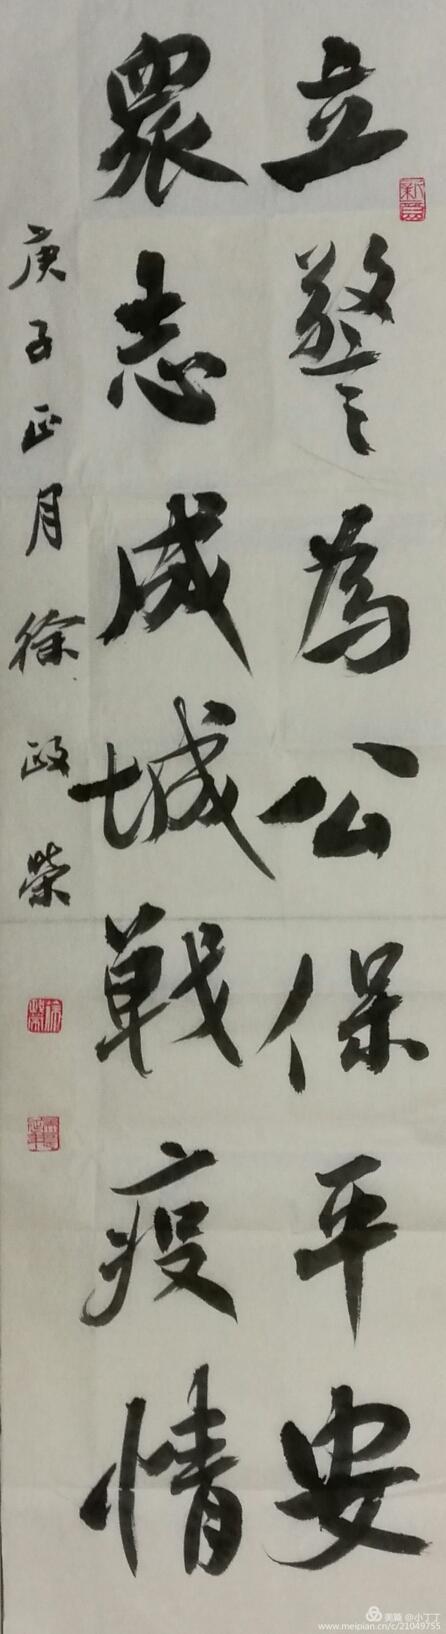 立警為公保平安
衆志成城戰疫情
庚子正月徐政榮
美篇 @小丁丁
www.meipian.cn/c/21049755